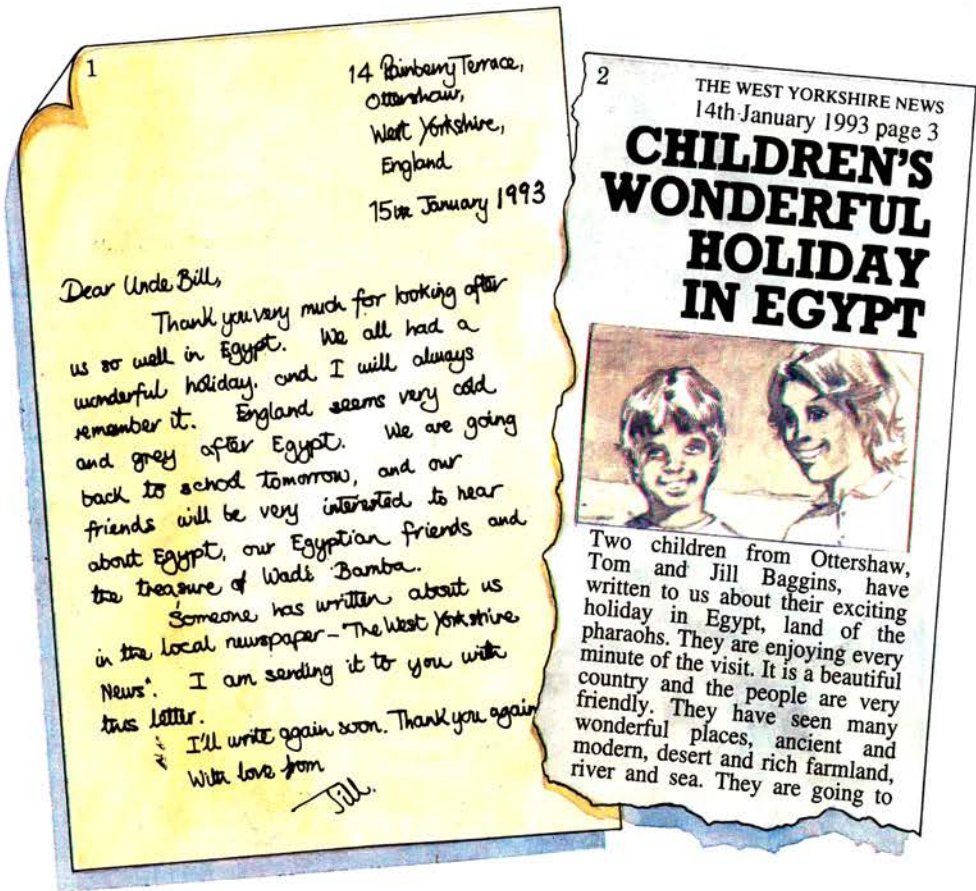 1
14 Bainberry Terrace,
Ottershaw,
West Yorkshire,
England
15th January 1993
Dear Uncle Bill,
Thank you very much for looking after
us so well in Egypt. We all had a
wonderful holiday, and I will always
remember it. England seems very cold
and grey after Egypt. We are going
back to school tomorrow, and our
friends will be very interested to hear
about Egypt, our Egyptian friends and
the treasure of Wadi Bamba.
Someone has written about us
in the local newspaper – "The West Yorkshire
News". I am sending it to you with
this letter.
I'll write again soon. Thank you again
With love from
Jill.
2
THE WEST YORKSHIRE NEWS
14th January 1993 page 3
CHILDREN'S
WONDERFUL
HOLIDAY
IN EGYPT
Two children from Ottershaw,
Tom and Jill Baggins, have
written to us about their exciting
holiday in Egypt, land of the
pharaohs. They are enjoying every
minute of the visit. It is a beautiful
country and the people are very
friendly. They have seen many
wonderful places, ancient and
modern, desert and rich farmland,
river and sea. They are going to